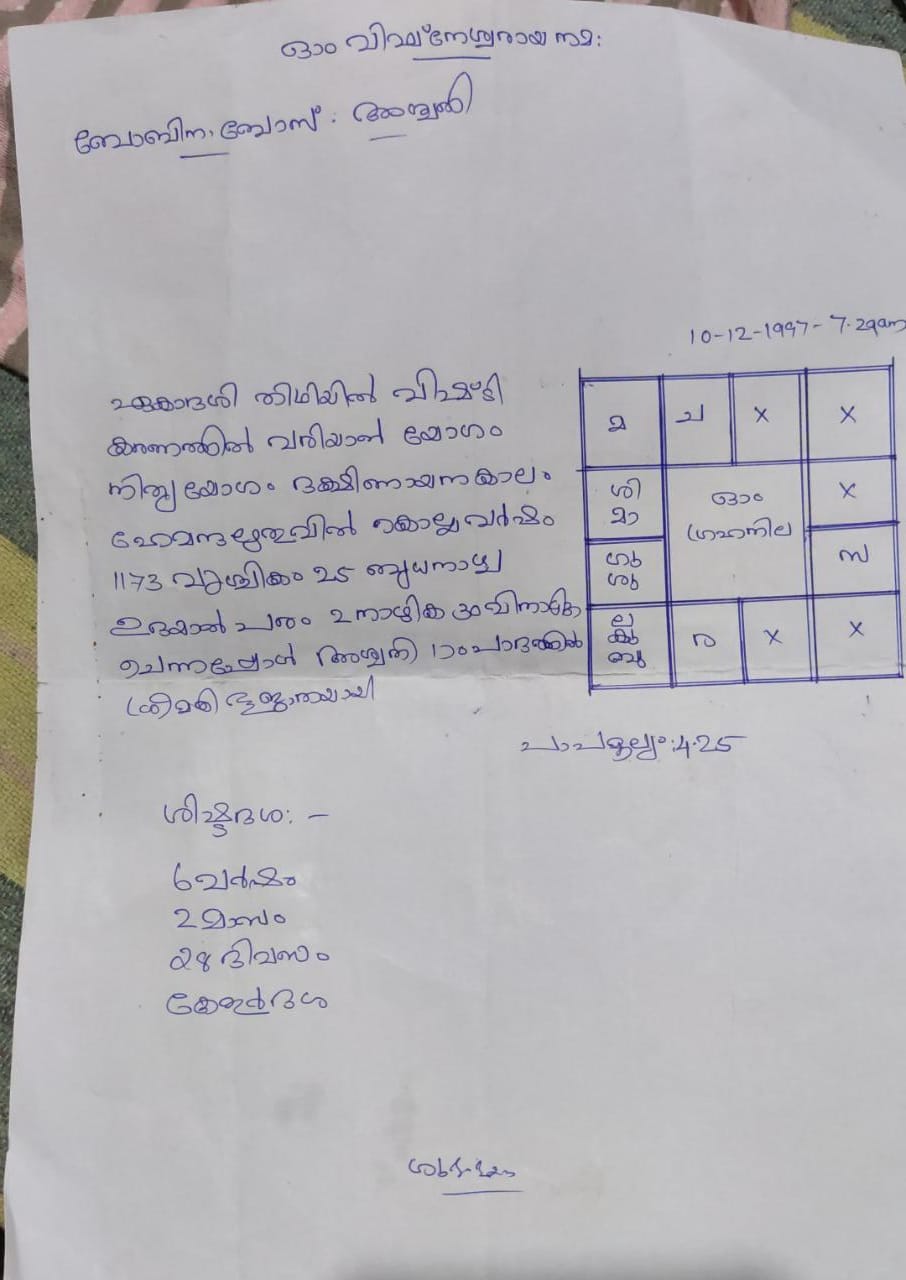 ഓം വിഘ്നേശ്വരായ നമ:
ബോബിന. ബോസ് : അശ്വതി
10-12-1997- 7.29am
ഏകാദശി തിഥിയിൽ വിഷ്ടി
കരണത്തിൽ വരിയാൻ യോഗം
നിത്യയോഗം ദക്ഷിണായനകാലം
ഹേമന്തഋതുവിൽ കൊല്ലവർഷം
1173 വൃശ്ചികം 25 ബുധനാഴ്ച
ഉദയാൽ പരം 2 നാഴിക 30 വിനാഴിക
ചെന്നപ്പോൾ അശ്വതി 1ാംപാദത്തിൽ
ശ്രീമതി ഭൂജാതയായി
മ ച x x
ശി മാ
ഓം
ഗ്രഹനില
x
ഗു ശു
സ
ല കു ബു
ര x x
പാപമൂല്യം :4.25
ശിഷ്ടദശ: -
6 വർഷം
2 മാസം
28 ദിവസം
കേതുർദശ